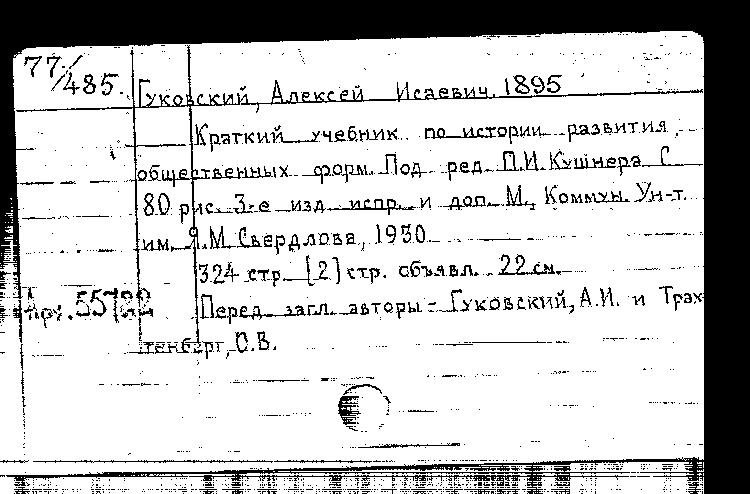 77/485.
Гуковский, Алексей Исаевич. 1895
Краткий учебник по истории развития
общественных форм. Под ред. П.И. Кушнера С
80 рис. 3-е изд. испр. и доп. М., Коммун. Ун-т.
им. Я.М. Свердлова, 1930.
324 стр. [2] стр. объявл. 22 см.
Арх. 55722
Перед загл. авторы - Гуковский, А.И. и Трах
тенберг, О.В.